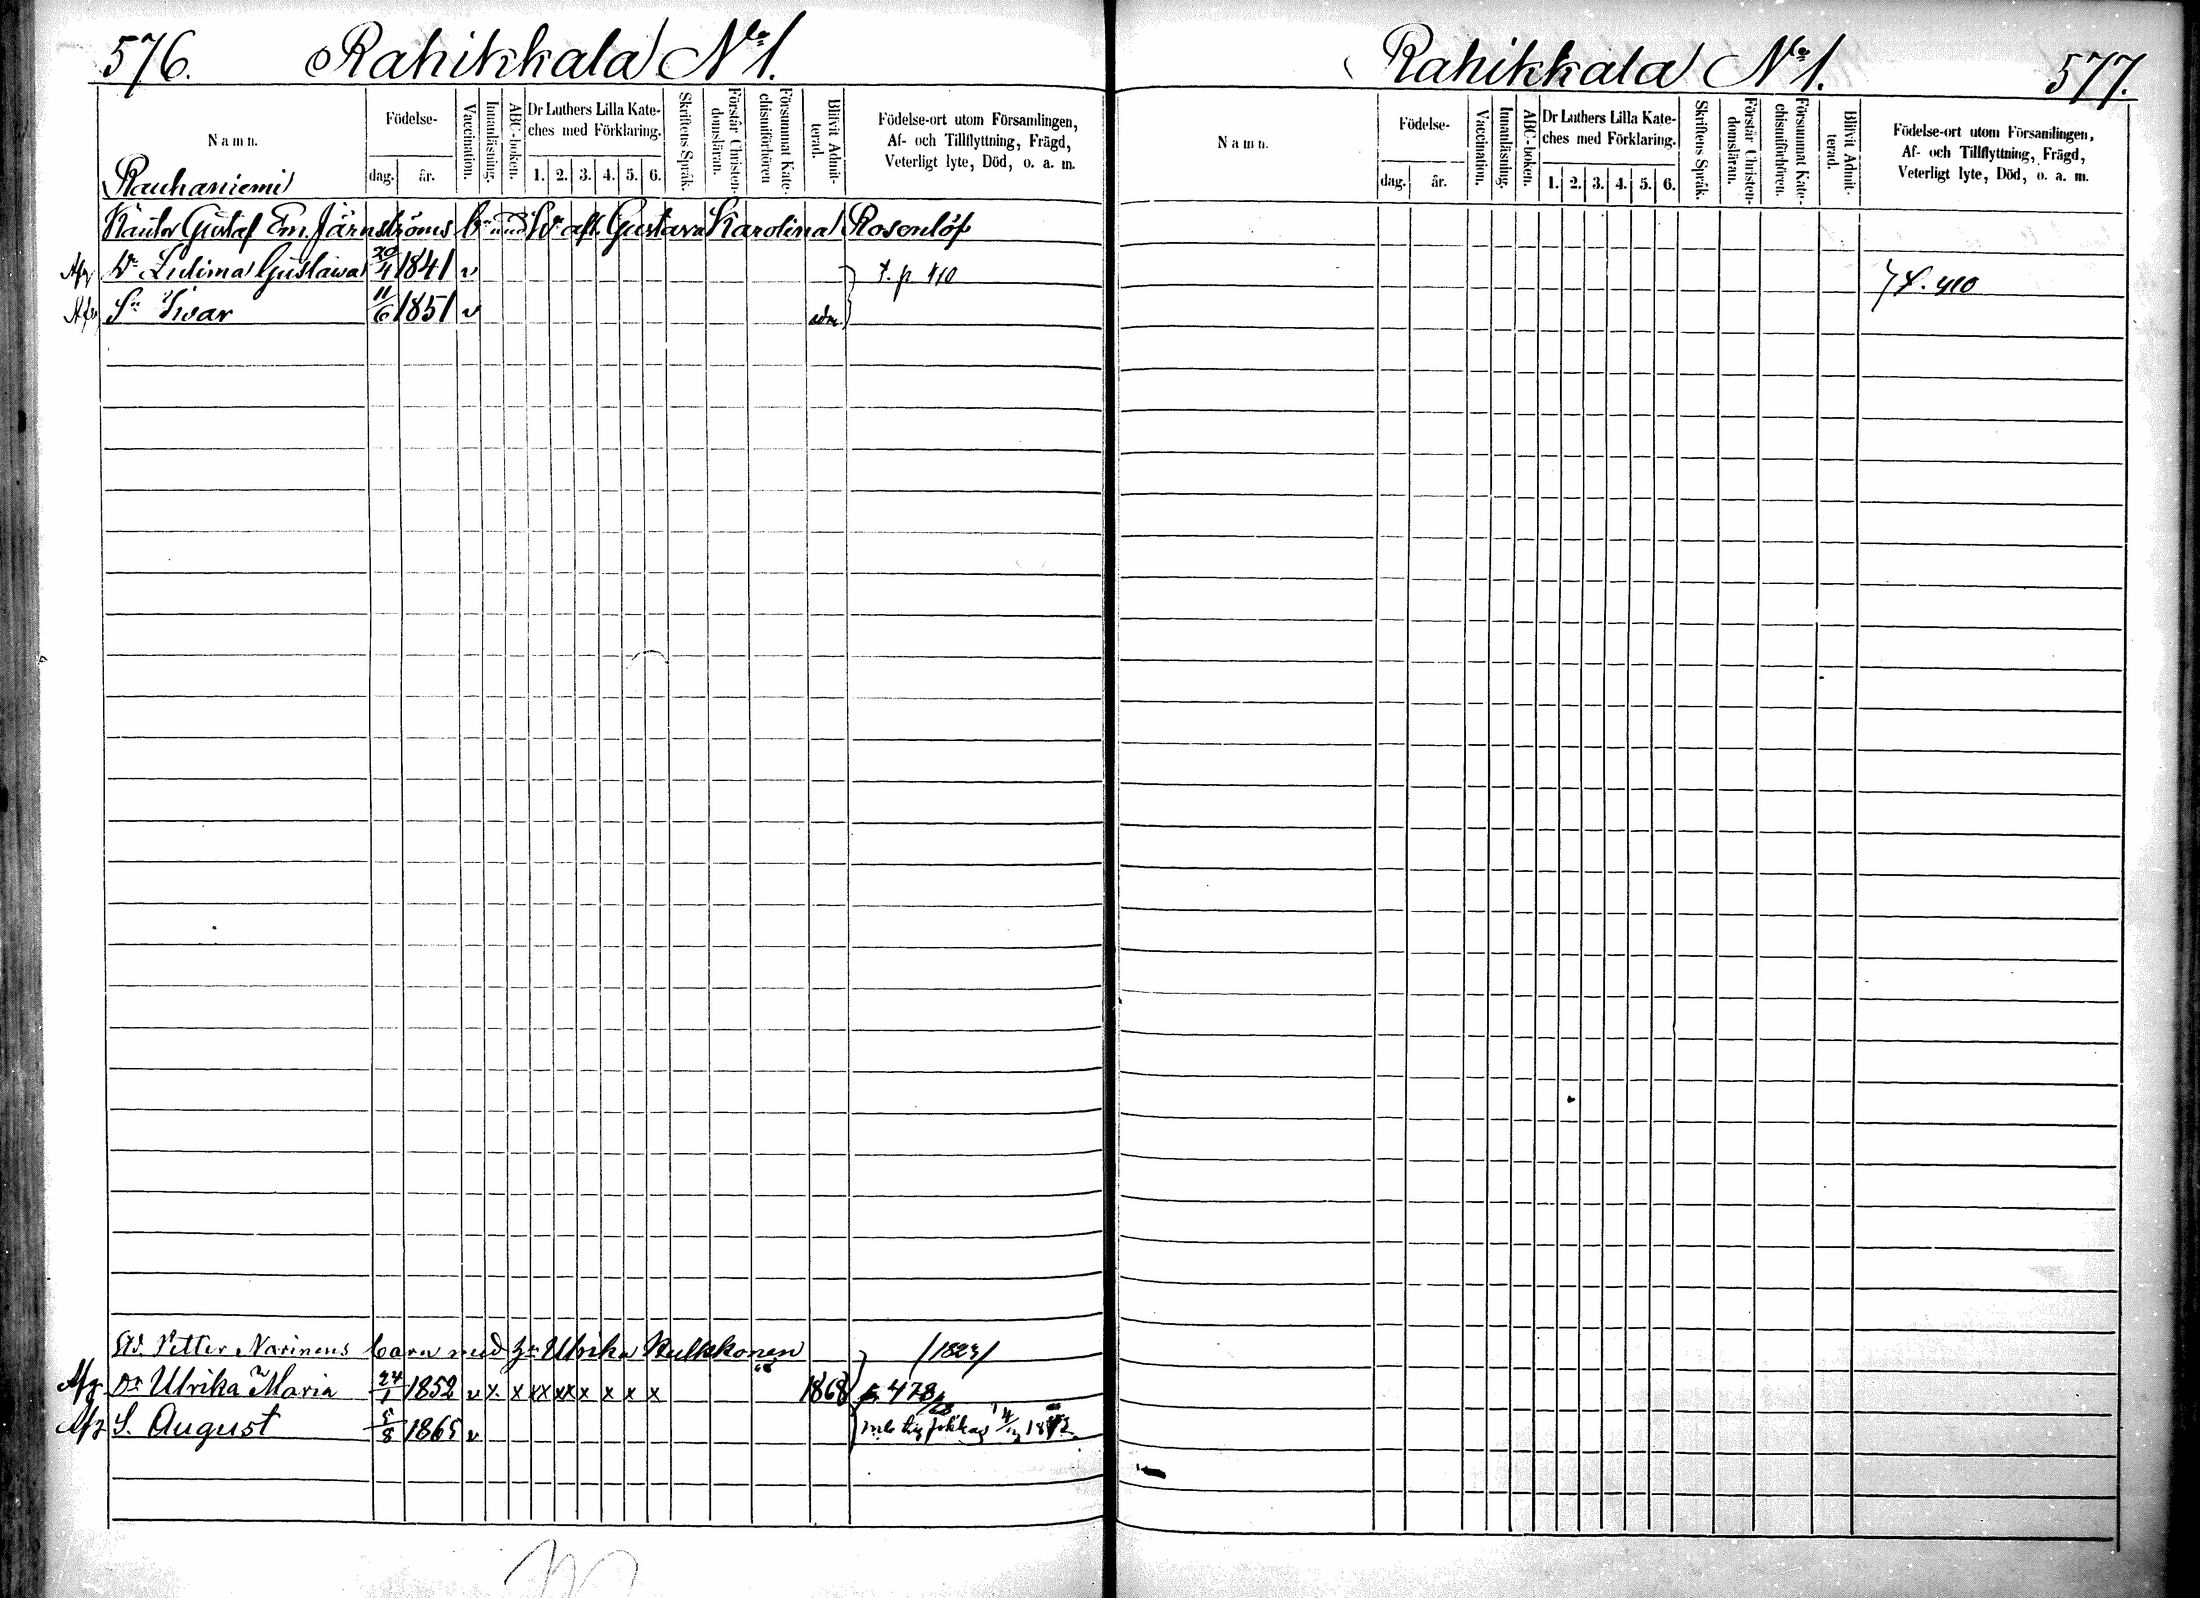 576. Rahikkala No 1.
Namn.
Födelse-
dag. år.
Vaccination.
Innanläsning.
ABC-boken.
Dr Luthers Lilla Kate-
ches med Förklaring.
1. 2. 3. 4. 5. 6.
Skriftens Språk.
Förstår Christen-
domsläran.
Försummat Kate-
chismiförhören
Blifvit Admit-
terad.
Födelse-ort utom Församlingen,
Af- och Tillflyttning, Frägd,
Veterligt lyte, Död, o. a. m.
Rauhaniemi
Kantor Gustaf Em. Järnströms med afl. Gustava Karolina Rosenlöf
Gustawa 20/4 1841 v p. 410
Sn Ivar 11/6 1851 v adm.
Petter Narinens barn med Ulrika Kulkkonen /1823/
Afg Dr Ulrika Maria 24/1 1852 v x x xx xx x x x x 1868 p. 478
Afg S. August 5/8 1865 v
Rahikkala No 1. 577.
Namn.
Födelse-
dag. år.
Vaccination.
Innanläsning.
ABC-boken.
Dr Luthers Lilla Kate-
ches med Förklaring.
1. 2. 3. 4. 5. 6.
Skriftens Språk.
Förstår Christen-
domsläran.
Försummat Kate-
chismiförhören.
Blifvit Admit-
terad.
Födelse-ort utom Församlingen,
Af- och Tillflyttning, Frägd,
Veterligt lyte, Död, o. a. m.
410